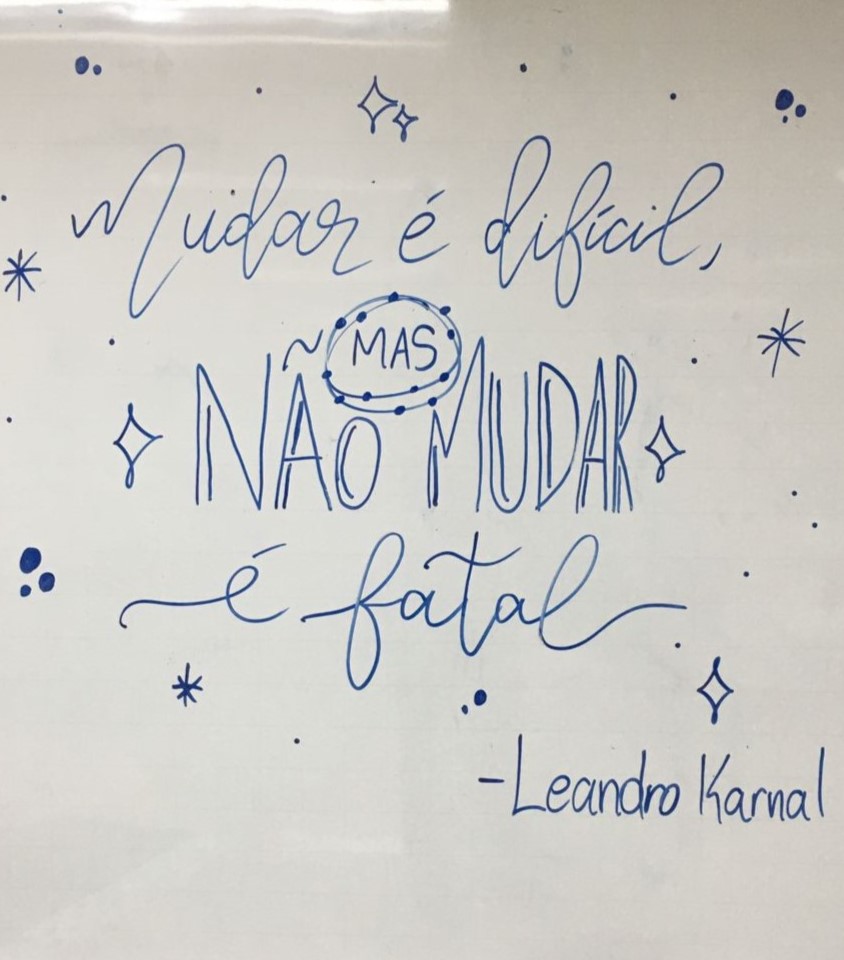 Mudar é difícil,
MAS
NÃO MUDAR
é fatal
-Leandro Karnal